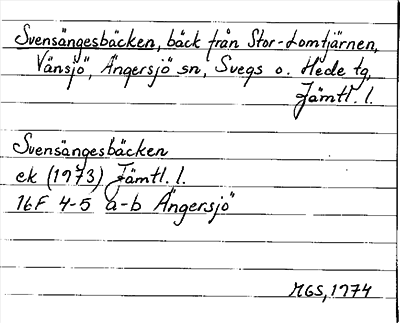 Svensängesbäcken, bäck från Stor-Lomtjärnen,
Vänsjö, Ängersjö sn, Svegs o. Hede tg,
Jämtl. l.
Svensängesbäcken
ek (1973) Jämtl. l.
16F 4-5 a-b Ängersjö
MGS, 1974